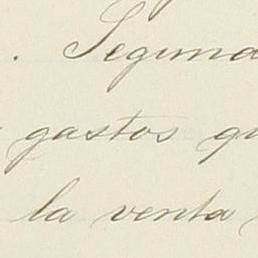 . Segunda
gastos qu
la venta